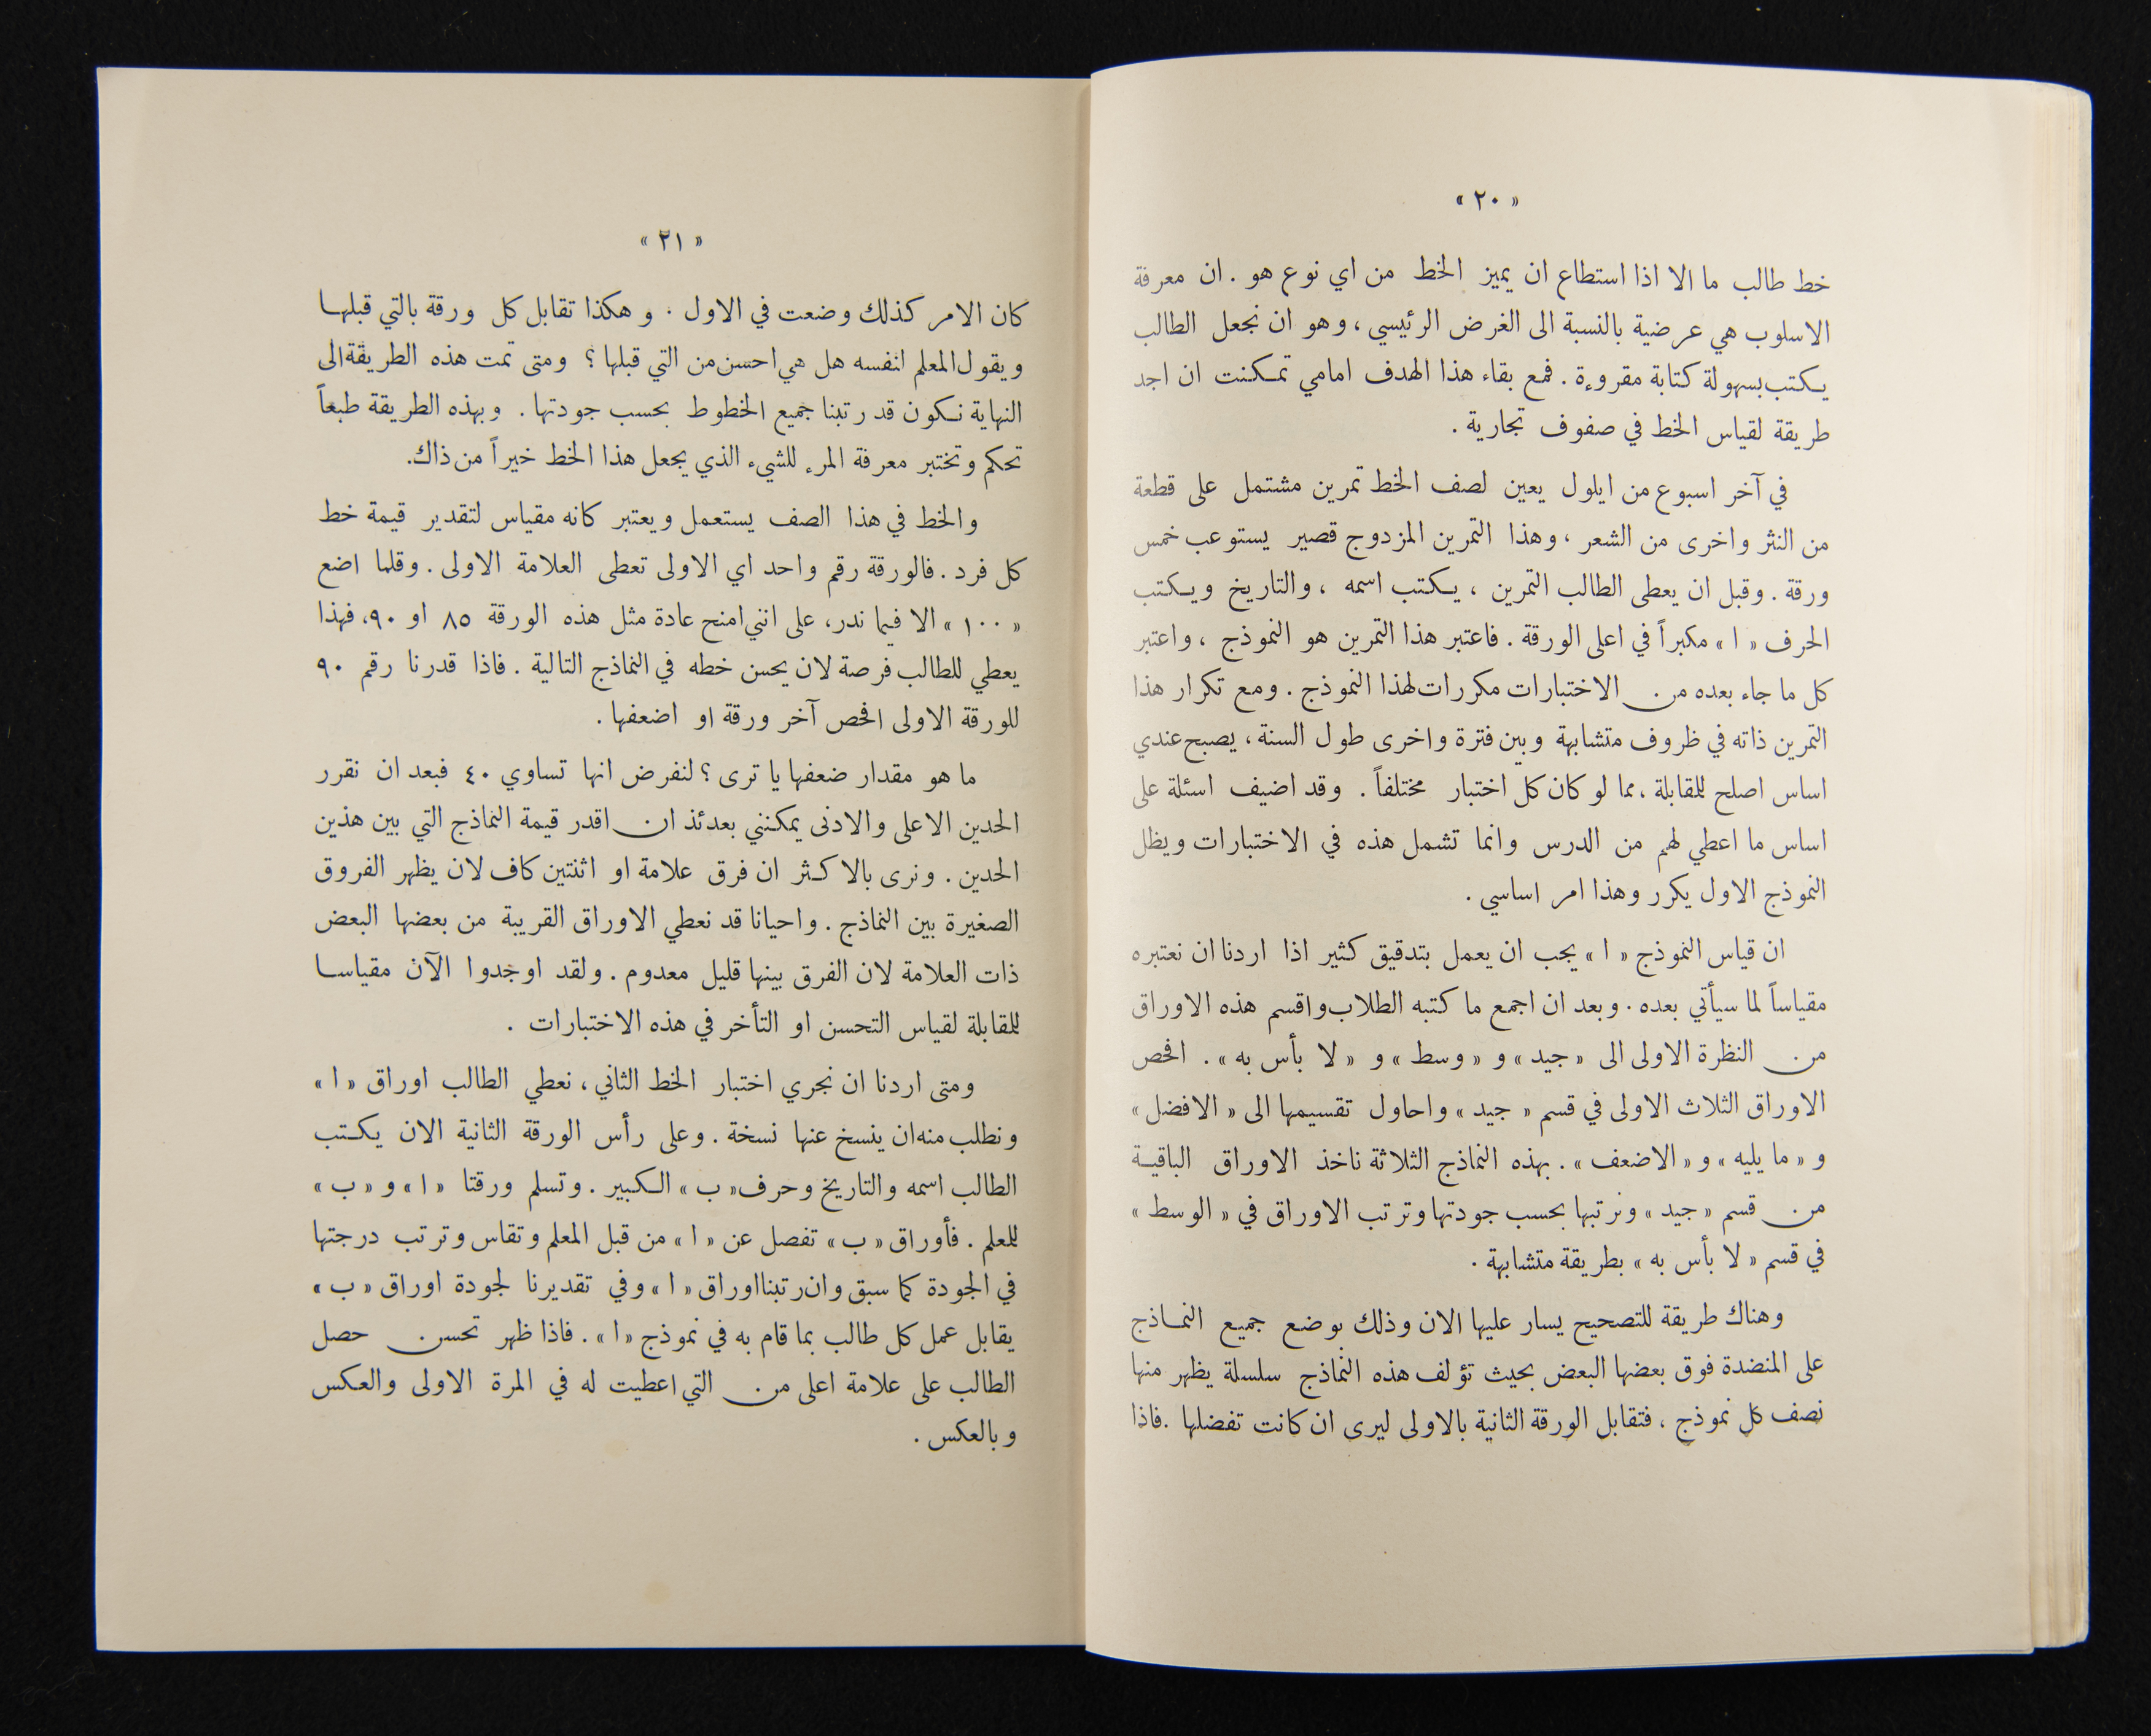 « ٢٠ »
خط طالب ما الا اذا استطاع ان يميز الخط من اي نوع هو . ان معرفة
الاسلوب هي عرضية بالنسبة الى الغرض الرئيسي ، وهو ان نجعل الطالب
يكتب بسهولة كتابة مقروءة . فمع بقاء هذا الهدف امامي تمكنت ان اجد
طريقة لقياس الخط في صفوف تجارية .
في آخر اسبوع من ايلول يعين لصف الخط تمرين مشتمل على قطعة
من النثر واخرى من الشعر ، وهذا التمرين المزدوج قصير يستوعب خمس
ورقة . وقبل ان يعطى الطالب التمرين ، يكتب اسمه ، والتاريخ ويكتب
الحرف « ا » مكبراً في اعلى الورقة . فاعتبر هذا التمرين هو النموذج ، واعتبر
كل ما جاء بعده من الاختبارات مكررات لهذا النموذج . ومع تكرار هذا
التمرين ذاته في ظروف متشابهة وبين فترة واخرى طول السنة ، يصبح عندي
اساس اصلح للمقابلة ، مما لو كان كل اختبار مختلفاً . وقد اضيف اسئلة على
اساس ما اعطي لهم من الدرس وانما تشمل هذه في الاختبارات ويظل
النموذج الاول يكرر وهذا امر اساسي .
ان قياس النموذج « ا » يجب ان يعمل بتدقيق كثير اذا اردنا ان نعتبره
مقياساً لما سيأتي بعده . وبعد ان اجمع ما كتبه الطلاب واقسم هذه الاوراق
من النظرة الاولى الى « جيد » و « وسط » و « لا بأس به » . افحص
الاوراق الثلاث الاولى في قسم « جيد » واحاول تقسيمها الى « الافضل »
و « ما يليه » و « الاضعف » . بهذه النماذج الثلاثة ناخذ الاوراق الباقية
من قسم « جيد » ونرتبها بحسب جودتها وترتب الاوراق في « الوسط »
في قسم « لا بأس به » بطريقة متشابهة .
وهناك طريقة للتصحيح يسار عليها الان وذلك بوضع جميع النماذج
على المنضدة فوق بعضها البعض بحيث تؤلف هذه النماذج سلسلة يظهر منها
نصف كل نموذج ، فتقابل الورقة الثانية بالاولى ليرى ان كانت تفضلها . فاذا
« ٢١ »
كان الامر كذلك وضعت في الاول . وهكذا تقابل كل ورقة بالتي قبلها
ويقول المعلم انفسه هل هي احسن من التي قبلها ؟ ومتى تمت هذه الطريقة الى
النهاية نكون قد رتبنا جميع الخطوط بحسب جودتها . وبهذه الطريقة طبعاً
تحكم وتختبر معرفة المرء للشيء الذي يجعل هذا الخط خيراً من ذاك.
والخط في هذا الصف يستعمل ويعتبر كانه مقياس لتقدير قيمة خط
كل فرد . فالورقة رقم واحد اي الاولى تعطى العلامة الاولى . وقلما اضع
« ١٠٠ » الا فيما ندر، على انني امنح عادة مثل هذه الورقة ٨٥ او ٩٠، فهذا
يعطي للطالب فرصة لان يحسن خطه في النماذج التالية . فاذا قدرنا رقم ٩٠
للورقة الاولى افحص آخر ورقة او اضعفها .
ما هو مقدار ضعفها يا ترى ؟ لنفرض انها تساوي ٤٠ فبعد ان نقرر
الحدين الاعلى والادنى يمكنني بعدئذ ان اقدر قيمة النماذج التي بين هذين
الحدين . ونرى بالاكثر ان فرق علامة او اثنتين كاف لان يظهر الفروق
الصغيرة بين النماذج . واحيانا قد نعطي الاوراق القريبة من بعضها البعض
ذات العلامة لان الفرق بينها قليل معدوم . ولقد اوجدوا الآن مقياسا
للمقابلة لقياس التحسن او التأخر في هذه الاختبارات .
ومتى اردنا ان نجري اختبار الخط الثاني ، نعطي الطالب اوراق « ا »
ونطلب منه ان ينسخ عنها نسخة . وعلى رأس الورقة الثانية الان يكتب
الطالب اسمه والتاريخ وحرف « ب » الكبير . وتسلم ورقتا « ا » و « ب »
للمعلم . فأوراق « ب » تفصل عن « ا » من قبل المعلم وتقاس وترتب درجتها
في الجودة كما سبق وان رتبنا اوراق « ا » وفي تقديرنا لجودة اوراق « ب »
يقابل عمل كل طالب بما قام به في نموذج « ا » . فاذا ظهر تحسن حصل
الطالب على علامة اعلى من التي اعطيت له في المرة الاولى والعكس
وبالعكس .